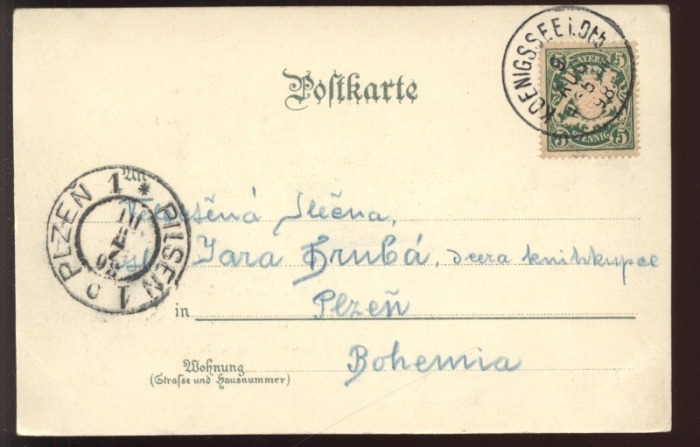 Postkarte
KOENIGSSEE i.Obb.
AUG
98
5 BAYERN 5
5 PFENNIG 5
PLZEŇ 1 * PILSEN 1
An
Slečna,
Jara Hrubá, dcera knihkupce
in Plzeň
Bohemia
Wohnung
(Strafse und Hausnummer)